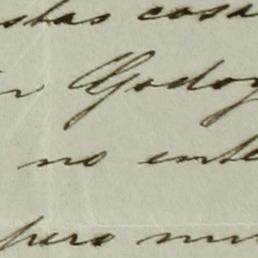 stas cosa
n Godoy
no ente
pero mu